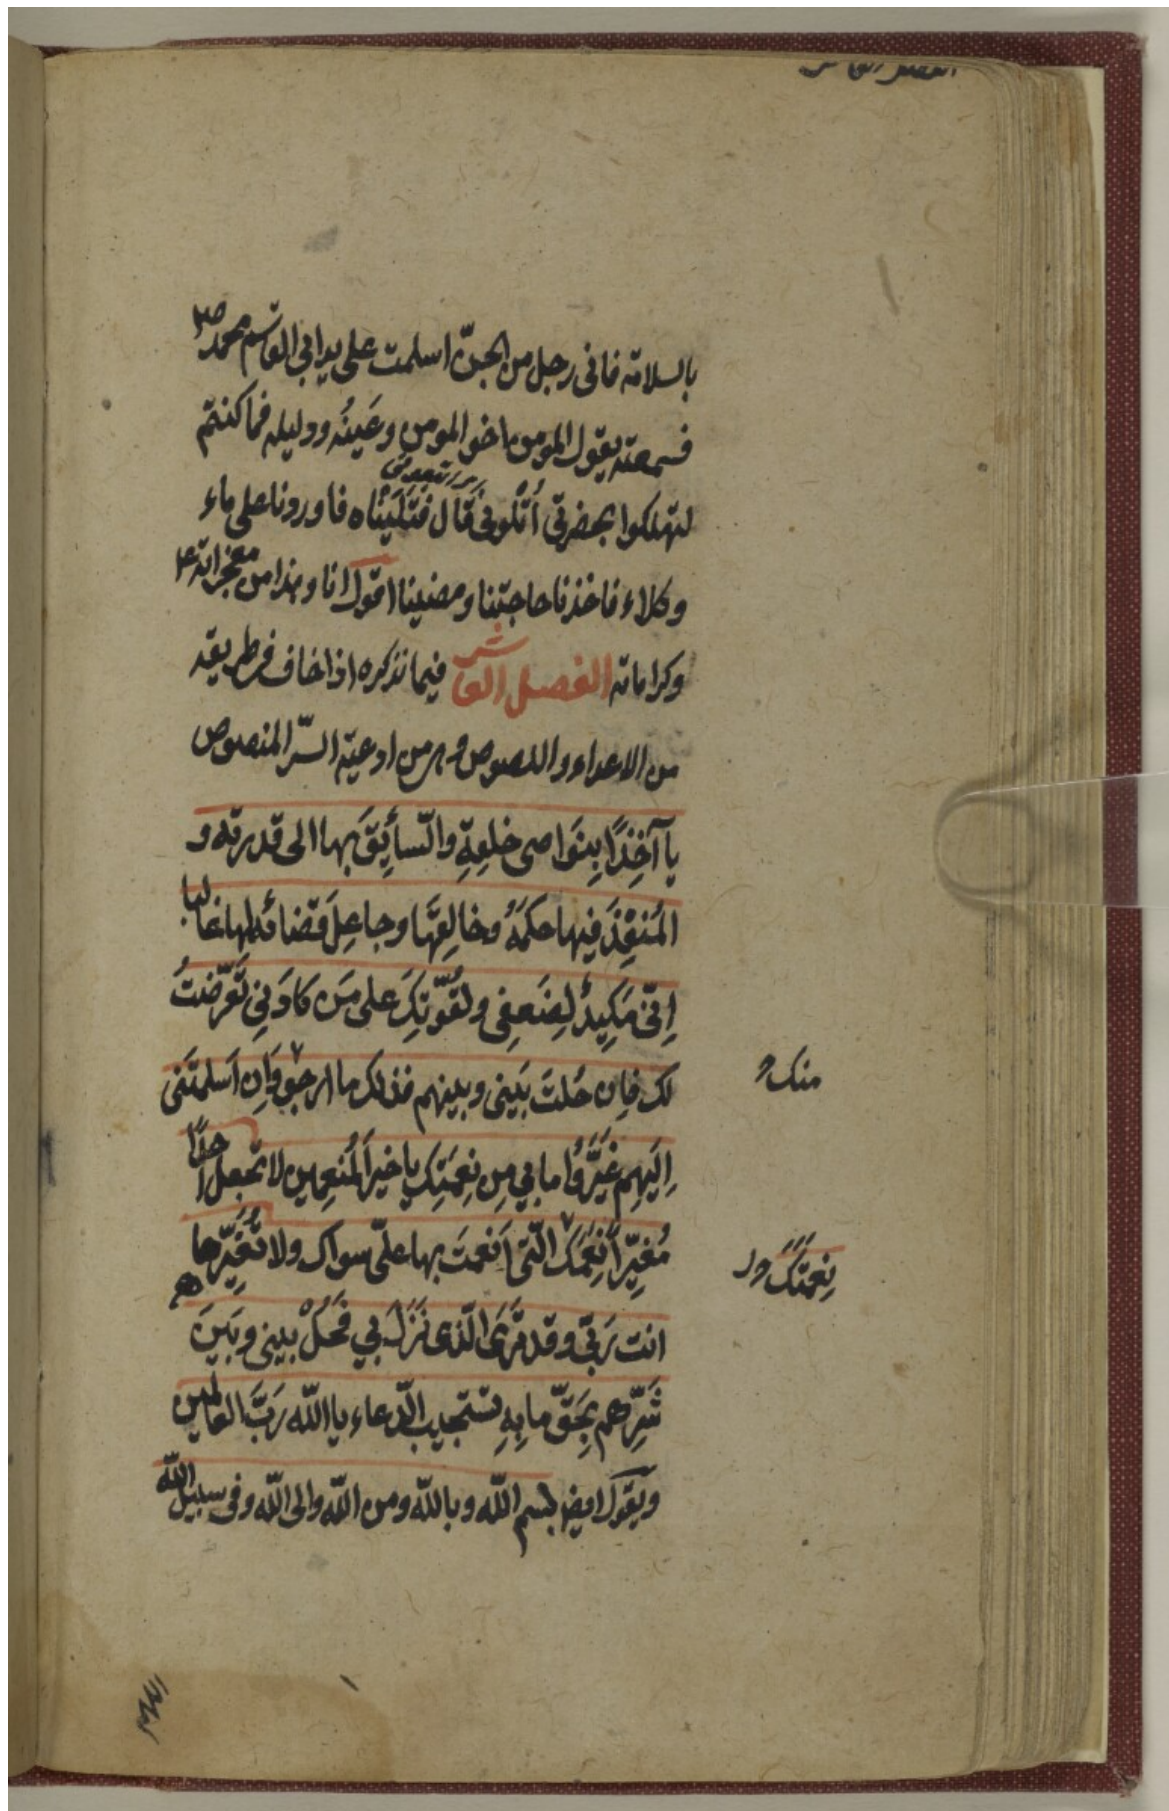 بالسلامة فانى رجل من الجنّ اسلمت على يد ابى القاسم محمد ص
فسمعته يقول المؤمن اخو المؤمن وعَينُه ودليله فما كنتم
لتهلكوا بحضرتى أتْلُونى قال فتَلَيْنَاه فاوردنا على ماء
وكلاء فاخذنا حاجتنا ومضينا اقول انا وهذا من معجزاته ع
وكراماته الفصل العاشر فيما نذكره اذا خاف فى طريقه
من الاعداء واللصوص وهى من ادعية السّر المنصوص
يا آخِذًا بِنَوَاصى خلقِهِ والسّأئِقَ بها الى قدرته و
المُنفِذَ فيها حكمَهُ وخالِقَها وجاعِلَ قضائه لها غالبا
اِنّى مَكِيدٌ لِضَعفِى ولقُوّتِكَ على مَن كادَنِى تَعَرّضتُ
لك فاِن حُلتَ بَينى وبينهم فذلك ما ارجو وَاِن اَسلمتَنى
اِلَيهِم غَيَّرُوا ما بى مِن نِعمَتِك يا خيرَ المُنعِمين لا تجعل احدًا
مُغيِّرًا نِعَمَكَ الّتى اَنعمتَ بها علىّ سواك ولا تُغَيِّرها
انت رَبّى وقد تَرَى الّذى نَزَلَ بى فَحُلْ بينى وبَينَ
شَرِّهم بِحَقّ ما بِهِ تستجيب الدّعاء يا اللّه رَبَّ العالمين
ويقول ايضا بسم اللّه وباللّه ومن اللّه والى اللّه وفى سبيل اللّه
منك
نِعمَتَكَ